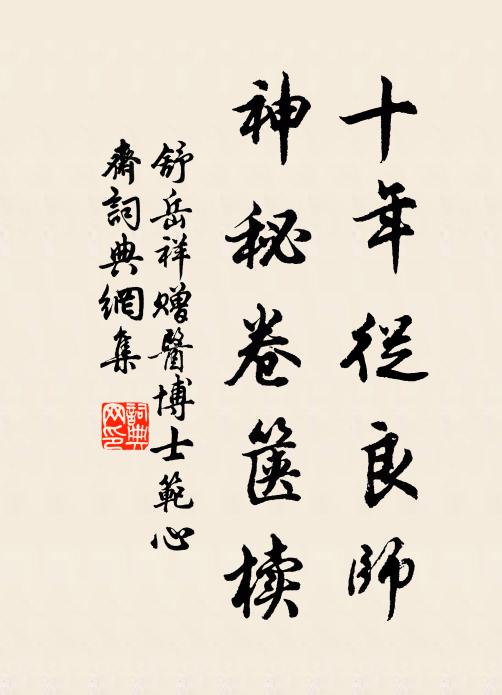 十年從良師
神秘卷篋櫝
舒岳祥贈醫博士範心
齋詞典網集
詞典
网印